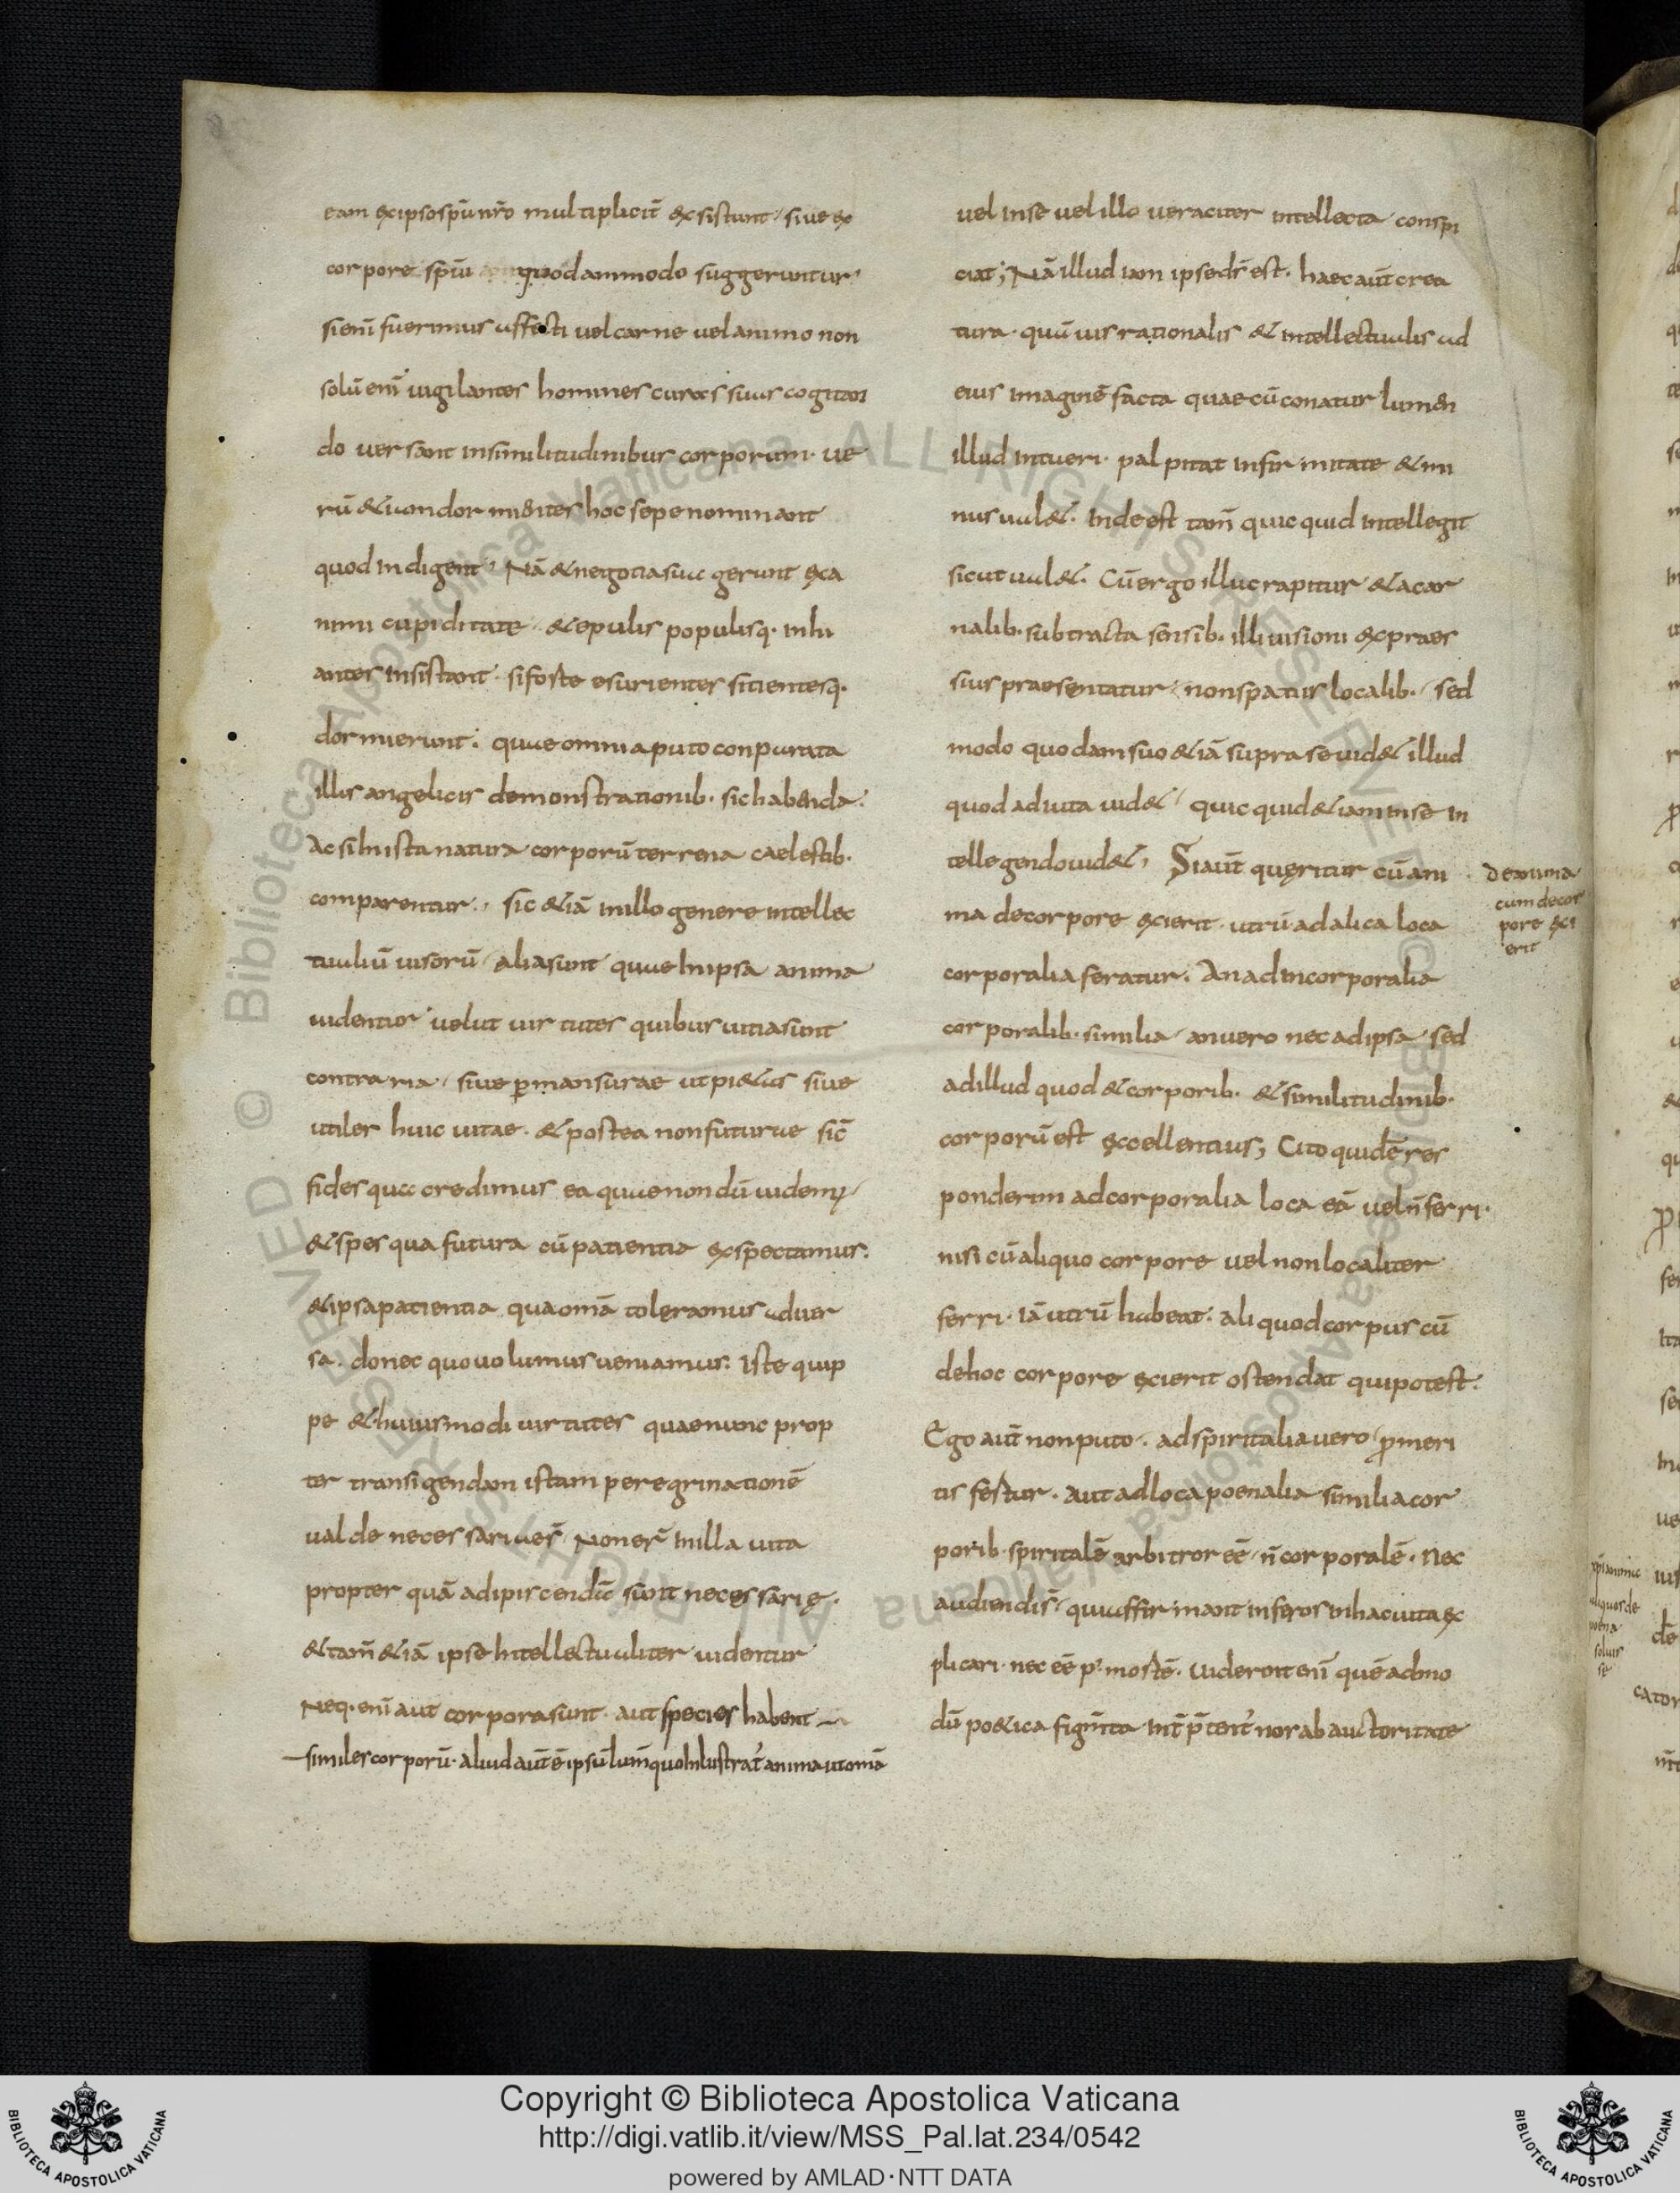 eam exipsosp̄u nr̄o multiplicit̄ exsistunt, siue ex
corpore sp̄iu quodammodo suggeruntur,
sienī fuerimus affecti uel carne uel animo non
solū enī uigilantes homines curas suas cogitan
do uersant insimilitudinibus corporum. ue
rū &iam dormientes hoc sepe nominant
quod indigent, Nā &negotia sua gerunt exa
nimi cupiditate. &epulis populisq. inhi
antes insistant. siforte esurientes sitientesq.
dormierunt. quae omnia puto conparata
illis angelicis demonstrationib. sic habenda.
Ac si inista natura corporū terrena caelestib.
comparentur., sic &iā inillo genere intellec
tualiū uisorū, alia sunt quae inipsa anima
uidentur uelut uirtutes quibus uitia sunt
contraria, siue p̄mansurae ut pi&as siue
utiles huic uitae. &postea nonfuturae sic̄
fides qua credimus ea quae nondū uidem;,
&spes qua futura cū patientia exspectamus.
&ipsa patientia qua omā toleramus aduer
sa. donec quo uolumus ueniamus. Iste quip
pe &huiusmodi uirtutes quae nunc prop
ter transigendam istam peregrinationē
ualde necessari aer̄ Noner̄ inilla uita
propter quā adipiscendā sunt necessarię.
&tam̄ &iā ipse intellectualiter uidentur
Neq. enī aut corpora sunt. aut species habent —
— similes corporū. aliud aut̄ ē ipsū lum̄ quo inlustrat̄ anima ut omā
uel inse uel illo ueraciter intellecta conspi
ciat; Nā illud iam ipse dr̄ est. haec aut̄ crea
tura. quāuis rationalis & intellectualis ad
eius imaginē facta quae cū conatur lumen
illud intueri. palpitat infirmitate &mi
nus ual&. Inde est tam̄ quicquid intellegit
sicut ual&. Cū ergo illuc rapitur &a car
nalib. subtracta sensib. illi uisioni expraes
sius praesentatur, non spatiis localib., sed
modo quodam suo &iā supra se uid& illud
quod adiuta uid&, quicquid &iam inse in
tellegendo uid&, Si aut̄ quęritur cū ani
ma de corpore exierit. utrū ad alica loca
corporalia feratur. An ad incorporalia
corporalib. similia, an uero nec ad ipsa, sed
ad illud quod &corporib. &similitudinib.
corporū est excellentius; Cito quidē res
ponderim ad corporalia loca eā uel n̄ ferri.
nisi cū aliquo corpore uel non localiter
ferri. Iā utrū habeat. aliquod corpus cū
dehoc corpore exierit ostendat qui potest.
Ego aut̄ non puto. ad spiritalia uero, p̄ meri
tis fertur. aut ad loca poenalia similia cor
porib. spiritalē arbitror eē, n̄ corporalē. Nec
audiendis, qui affirmant inferos in hac uita ex
plicari. nec eē p; mortē. uiderint enī quē admo
dū po&ica figm̄ta int̄p̄tent̄ nos ab auctoritate
de anima
cum decor
pore exi
erit